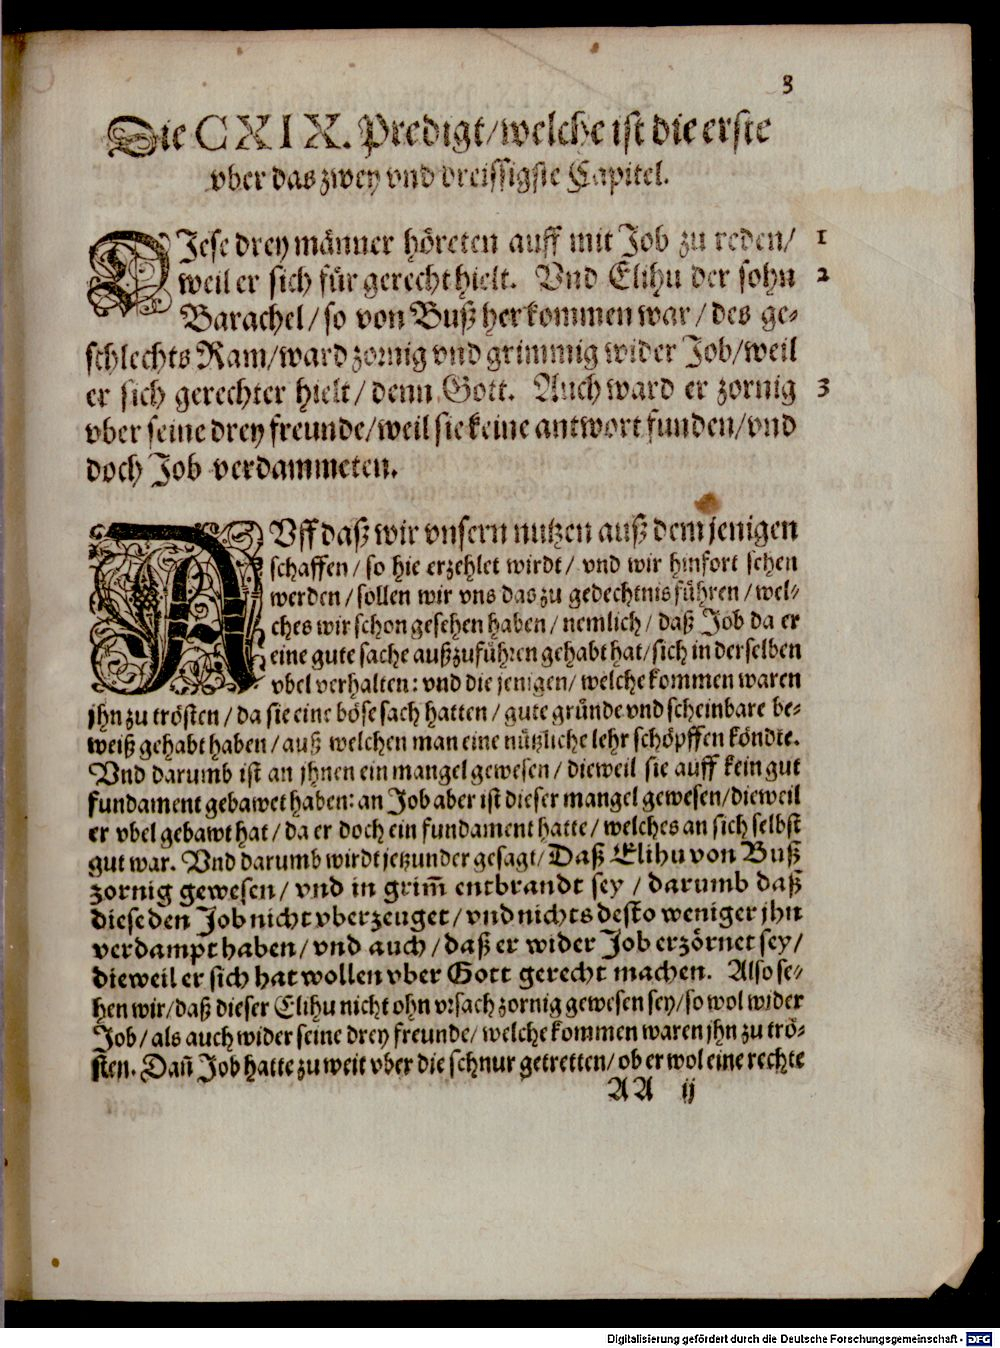 3
Die CXIX. Predigt/welche ist die erste
vber das zwey vnd dreissigste Capitel.
DIese drey männer höreten auff mit Job zu reden/ 1
weil er sich für gerecht hielt. Vnd Elihu der sohn 2
Barachel/ so von Buß herkommen war/ des ge-
schlechts Ram/ward zornig vnd grimmig wider Job/weil
er sich gerechter hielt/ denn Gott. Auch ward er zornig 3
vber seine drey freunde/weil sie keine antwort funden/vnd
doch Job verdammeten.
AVff daß wir vnsern nutzen auß dem jenigen
schaffen/ so hie erzehlet wirdt/ vnd wir hinfort sehen
werden/ sollen wir vns das zu gedechtnis führen/ wel-
ches wir schon gesehen haben/ nemlich/ daß Job da er
eine gute sache außzuführen gehabt hat/sich in derselben
vbel verhalten: vnd die jenigen/ welche kommen waren
jhn zu trösten/ da sie eine böse sach hatten/ gute gründe vnd scheinbare be-
weiß gehabt haben/ auß welchen man eine nützliche lehr schöpffen köndte.
Vnd darumb ist an jhnen ein mangel gewesen/ dieweil sie auff kein gut
fundament gebawet haben: an Job aber ist dieser mangel gewesen/dieweil
er vbel gebawt hat/ da er doch ein fundament hatte/ welches an sich selbst
gut war. Vnd darumb wirdt jetzunder gesagt/ Daß Elihu von Buß
zornig gewesen/ vnd in grim̃ entbrandt sey/ darumb daß
diese den Job nicht vberzeuget/ vnd nichts desto weniger jhn
verdampt haben/ vnd auch/ daß er wider Job erzörnet sey/
dieweil er sich hat wollen vber Gott gerecht machen. Also se-
hen wir/daß dieser Elihu nicht ohn vrsach zornig gewesen sey/so wol wider
Job/ als auch wider seine drey freunde/ welche kommen waren jhn zu trö-
sten. Dañ Job hatte zu weit vber die schnur getretten/ ob er wol eine rechte
AA ij
Digitalisierung gefördert durch die Deutsche Forschungsgemeinschaft - DFG